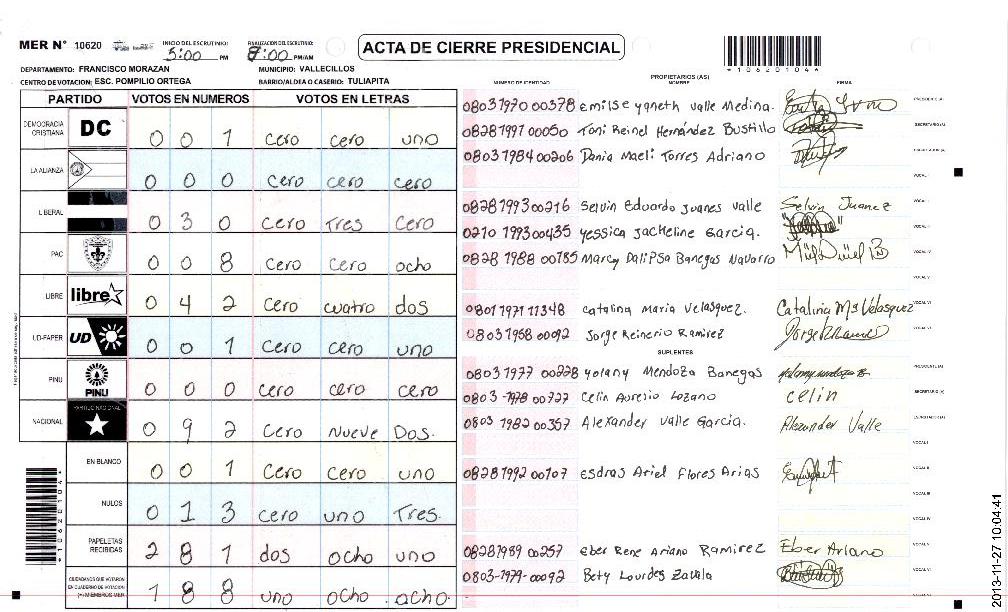 MER N° 10620 INICIO DEL ESCRUTINIO: 5:00 PM FINALIZACION DEL ESCRUTINIO: 8:00 PM/AM ACTA DE CIERRE PRESIDENCIAL
*10620104*
DEPARTAMENTO: FRANCISCO MORAZAN MUNICIPIO: VALLECILLOS
CENTRO DE VOTACION: ESC. POMPILIO ORTEGA BARRIO/ALDEA O CASERIO: TULIAPITA
PARTIDO VOTOS EN NUMEROS VOTOS EN LETRAS
DEMOCRACIA CRISTIANA DC 0 0 1 cero cero uno
LA ALIANZA 0 0 0 cero cero cero
LIBERAL 0 3 0 cero Tres cero
PAC 0 0 8 cero cero ocho
LIBRE libre 0 4 2 cero cuatro dos
UD-FAPER UD 0 0 1 cero cero uno
PINU PINU 0 0 0 cero cero cero
NACIONAL PARTIDO NACIONAL 0 9 2 cero Nueve Dos.
EN BLANCO 0 0 1 cero cero uno
NULOS 0 1 3 cero uno Tres.
PAPELETAS RECIBIDAS 2 8 1 dos ocho uno
CIUDADANOS QUE VOTARON EN CUADERNO DE VOTACION (+) MIEMBROS MER 1 8 8 uno ocho ocho.
PROPIETARIOS (AS)
NUMERO DE IDENTIDAD NOMBRE FIRMA
0803 1970 00378 Emilse yaneth valle Medina. PRESIDENTE (A)
0828 1991 00050 Toni Reinel Hernández Bustillo SECRETARIO (A)
0803 1984 00206 Dania Maeli Torres Adriano ESCRUTADOR (A)
VOCAL I
0828 1993 00216 Selvin Eduardo Juanes valle Selvin Juanez VOCAL II
0210 1993 00435 yessica jackeline Garcia.
0828 1988 00785 Marcy Dalipsa Banegas Navarro VOCAL IV
VOCAL V
0801 1971 11348 catalina Maria Velasquez. Catalina Mª Velasquez VOCAL VI
0803 1968 00092 Jorge Reinerio Ramirez
SUPLENTES
0803 1977 00228 yolany Mendoza Banegas PRESIDENTE (A)
0803 -1978 00727 Celin Aurelio Lozano celin SECRETARIO (A)
0803 1982 00357 Alexander valle Garcia. Alexander Valle ESCRUTADOR (A)
VOCAL I
0828 1992 00107 esdras Ariel Flores Arias VOCAL II
VOCAL III
VOCAL IV
0828 1989 00257 Eber Rene Ariano Ramirez Eber Ariano VOCAL V
0803-1979-00092 Bety Lourdes Zavala VOCAL VI
*10620104*
2013-11-27 10:04:41